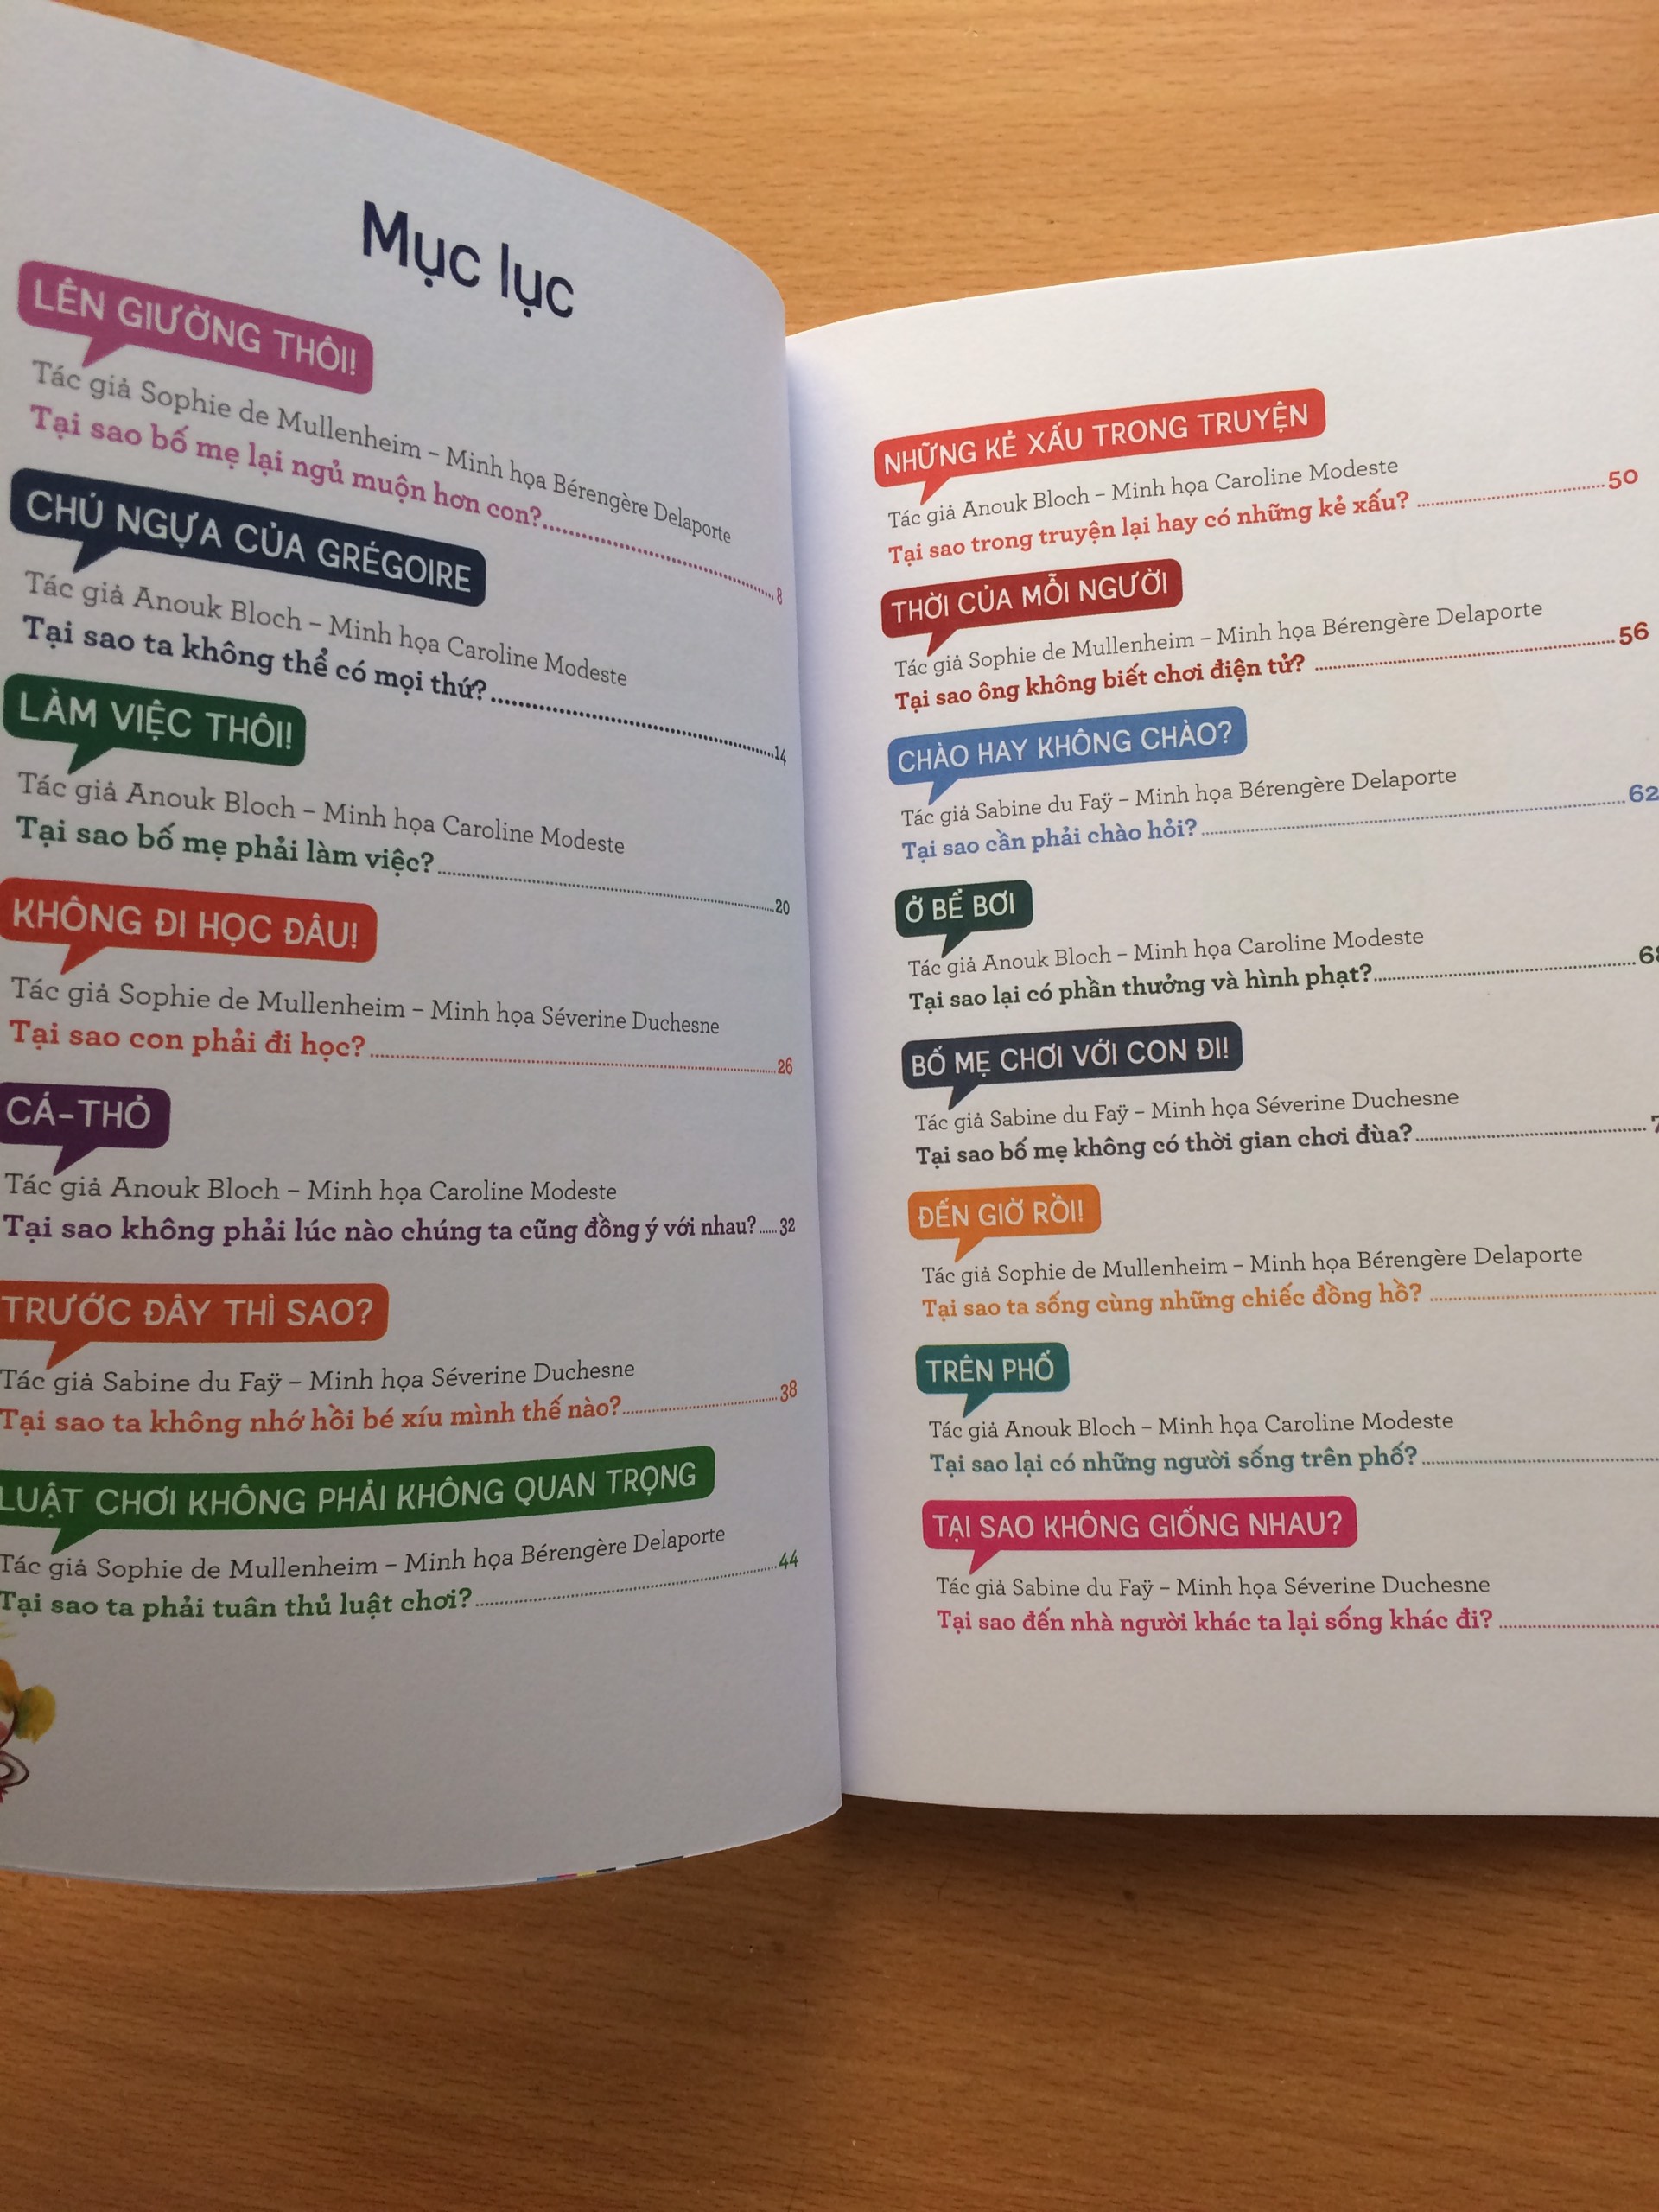 Mục lục
LÊN GIƯỜNG THÔI!
Tác giả Sophie de Mullenheim – Minh họa Bérengère Delaporte
Tại sao bố mẹ lại ngủ muộn hơn con?........8
CHÚ NGỰA CỦA GRÉGOIRE
Tác giả Anouk Bloch – Minh họa Caroline Modeste
Tại sao ta không thể có mọi thứ?........14
LÀM VIỆC THÔI!
Tác giả Anouk Bloch – Minh họa Caroline Modeste
Tại sao bố mẹ phải làm việc?........20
KHÔNG ĐI HỌC ĐÂU!
Tác giả Sophie de Mullenheim – Minh họa Séverine Duchesne
Tại sao con phải đi học?........26
CÁ-THỎ
Tác giả Anouk Bloch – Minh họa Caroline Modeste
Tại sao không phải lúc nào chúng ta cũng đồng ý với nhau?.....32
TRƯỚC ĐÂY THÌ SAO?
Tác giả Sabine du Faÿ – Minh họa Séverine Duchesne
Tại sao ta không nhớ hồi bé xíu mình thế nào?........38
LUẬT CHƠI KHÔNG PHẢI KHÔNG QUAN TRỌNG
Tác giả Sophie de Mullenheim – Minh họa Bérengère Delaporte
Tại sao ta phải tuân thủ luật chơi?........44
NHỮNG KẺ XẤU TRONG TRUYỆN
Tác giả Anouk Bloch – Minh họa Caroline Modeste
Tại sao trong truyện lại hay có những kẻ xấu? ........50
THỜI CỦA MỖI NGƯỜI
Tác giả Sophie de Mullenheim – Minh họa Bérengère Delaporte
Tại sao ông không biết chơi điện tử? ........56
CHÀO HAY KHÔNG CHÀO?
Tác giả Sabine du Faÿ – Minh họa Bérengère Delaporte
Tại sao cần phải chào hỏi?........62
Ở BỂ BƠI
Tác giả Anouk Bloch – Minh họa Caroline Modeste
Tại sao lại có phần thưởng và hình phạt?........68
BỐ MẸ CHƠI VỚI CON ĐI!
Tác giả Sabine du Faÿ – Minh họa Séverine Duchesne
Tại sao bố mẹ không có thời gian chơi đùa?........7
ĐẾN GIỜ RỒI!
Tác giả Sophie de Mullenheim – Minh họa Bérengère Delaporte
Tại sao ta sống cùng những chiếc đồng hồ? ........
TRÊN PHỐ
Tác giả Anouk Bloch – Minh họa Caroline Modeste
Tại sao lại có những người sống trên phố?........
TẠI SAO KHÔNG GIỐNG NHAU?
Tác giả Sabine du Faÿ – Minh họa Séverine Duchesne
Tại sao đến nhà người khác ta lại sống khác đi? ........